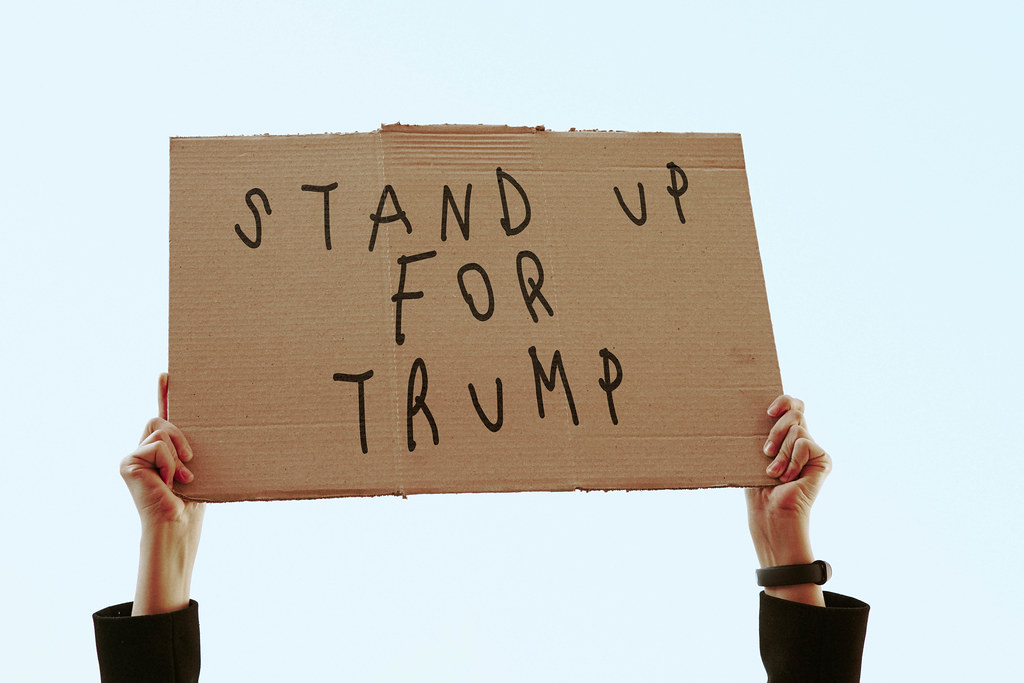 STAND UP
FOR
TRUMP